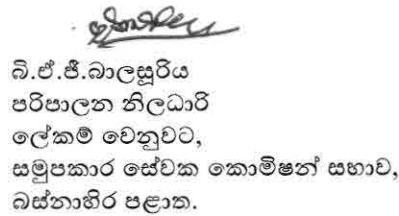 බී.ඒ.ජී.බාලසූරිය
පරිපාලන නිලධාරි
ලේකම් වෙනුවට,
සමුපකාර සේවක කොමිෂන් සභාව,
බස්නාහිර පළාත.